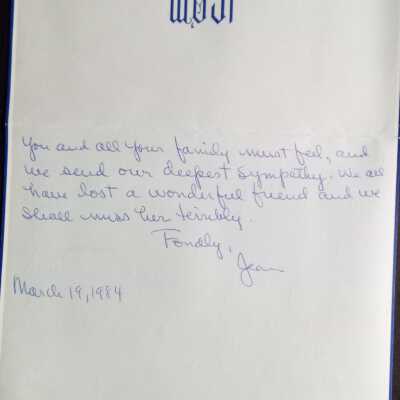 You and all your family must feel, and
we send our deepest sympathy. We all
have lost a wonderful friend and we
shall miss her terribly.
Fondly,
Jean
March 19, 1984